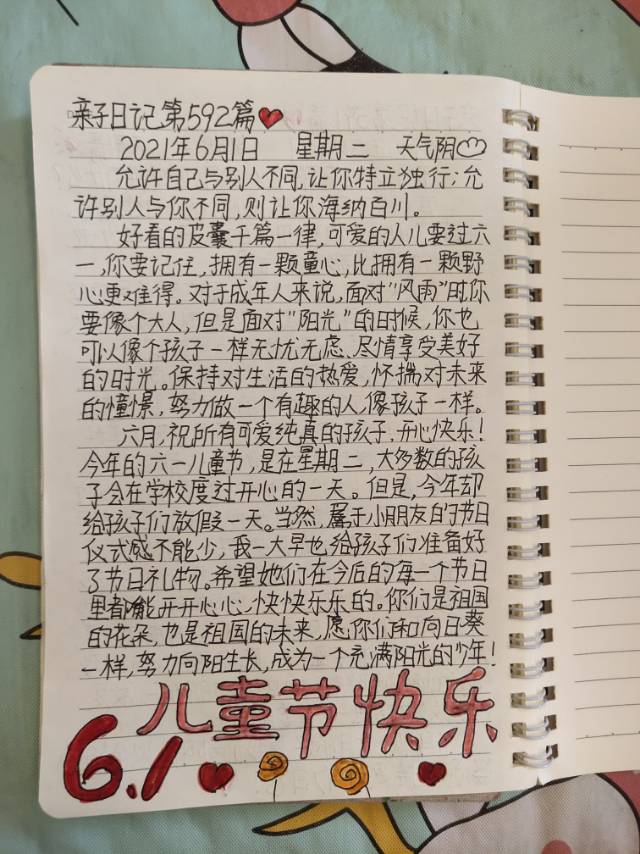 亲子日记第592篇
2021年6月1日 星期二 天气阴
允许自己与别人不同,让你特立独行;允
许别人与你不同,则让你海纳百川。
好看的皮囊千篇一律,可爱的人儿要过六
一,你要记住,拥有一颗童心,比拥有一颗野
心更难得。对于成年人来说,面对“风雨”时你
要像个大人,但是面对“阳光”的时候,你也
可以像个孩子一样无忧无虑、尽情享受美好
的时光。保持对生活的热爱,怀揣对未来
的憧憬,努力做一个有趣的人,像孩子一样。
六月,祝所有可爱纯真的孩子,开心快乐!
今年的六一儿童节,是在星期二,大多数的孩
子会在学校度过开心的一天。但是,今年却
给孩子们放假一天。当然,属于小朋友的节日
仪式感不能少,我一大早也给孩子们准备好
了节日礼物。希望她们在今后的每一个节日
里都能开开心心,快快乐乐的。你们是祖国
的花朵,也是祖国的未来,愿你们和向日葵
一样,努力向阳生长,成为一个充满阳光的少年!
6.1儿童节快乐